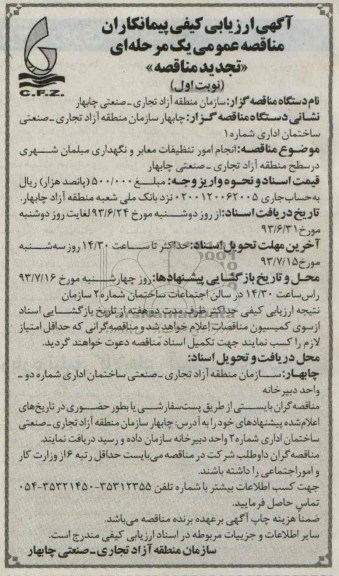 آگهی ارزیابی کیفی پیمانکاران
مناقصه عمومی یک مرحله‌ای
«تجدید مناقصه»
(نوبت اول)
C.F.Z.
نام دستگاه مناقصه گزار: سازمان منطقه آزاد تجاری ـ صنعتی چابهار
نشانی دستگاه مناقصه گزار: چابهار سازمان منطقه آزاد تجاری ـ صنعتی
ساختمان اداری شماره ۱
موضوع مناقصه: انجام امور تنظیفات معابر و نگهداری مبلمان شهری
در سطح منطقه آزاد تجاری ـ صنعتی چابهار
قیمت اسناد و نحوه واریز وجه: مبلغ ۵۰۰/۰۰۰ (پانصد هزار) ریال
به حساب جاری ۰۲۰۰۱۲۰۰۶۲۰۰۵ نزد بانک ملی شعبه منطقه آزاد چابهار.
تاریخ دریافت اسناد: از روز دوشنبه مورخ ۹۳/۶/۲۴ لغایت روز دوشنبه
مورخ ۹۳/۶/۳۱
آخرین مهلت تحویل اسناد: حداکثر تا ساعت ۱۴/۳۰ روز سه‌شنبه
مورخ ۹۳/۷/۱۵
محل و تاریخ بازگشایی پیشنهادها: روز چهارشنبه مورخ ۹۳/۷/۱۶
راس ساعت ۱۴/۳۰ در سالن اجتماعات ساختمان شماره ۲ سازمان
نتیجه ارزیابی کیفی حداکثر ظرف مدت دو هفته از تاریخ بازگشایی اسناد
از سوی کمیسیون مناقصات اعلام خواهد شد و مناقصه‌گرانی که حداقل امتیاز
لازم را کسب نمایند جهت تکمیل اسناد مناقصه دعوت خواهند گردید.
محل دریافت و تحویل اسناد:
چابهار: سازمان منطقه آزاد تجاری ـ صنعتی ساختمان اداری شماره دو ـ
واحد دبیرخانه
مناقصه گران بایستی از طریق پست سفارشی یا بطور حضوری در تاریخ‌های
اعلام شده پیشنهادهای خود را به آدرس: چابهار سازمان منطقه آزاد تجاری ـ صنعتی
ساختمان اداری شماره ۲ واحد دبیرخانه سازمان داده و رسید دریافت نمایند.
مناقصه گران داوطلب شرکت در مناقصه می‌بایست حداقل رتبه ۶ از وزارت کار
و امور اجتماعی را داشته باشند.
جهت کسب اطلاعات بیشتر با شماره تلفن ۳۵۳۱۲۳۵۵-۳۵۳۲۱۴۵۰-۰۵۴
تماس حاصل فرمایید.
ضمناً هزینه چاپ آگهی برعهده برنده مناقصه می‌باشد.
سایر اطلاعات و جزییات مربوطه در اسناد ارزیابی کیفی مندرج است.
سازمان منطقه آزاد تجاری ـ صنعتی چابهار